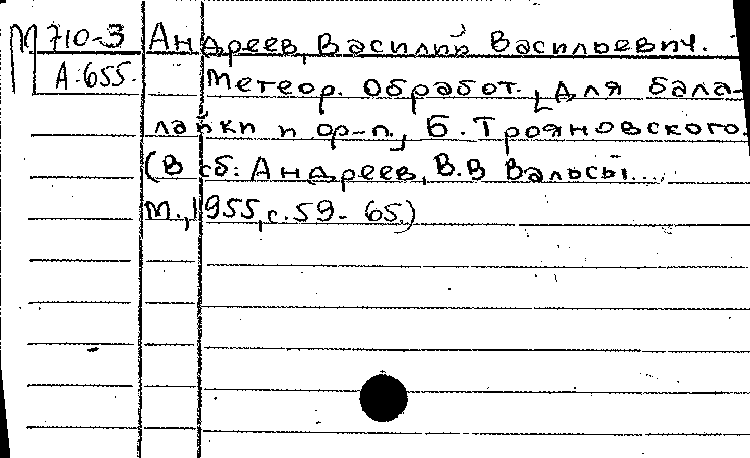 М 710-3 Андреев, Василий Васильевич.
А-655. Метеор. Обработ. [для бала-
лайки и ф-п.] Б. Трояновского.
(В сб: Андреев, В.В Вальсы....
М., 1955, с. 59-65.)